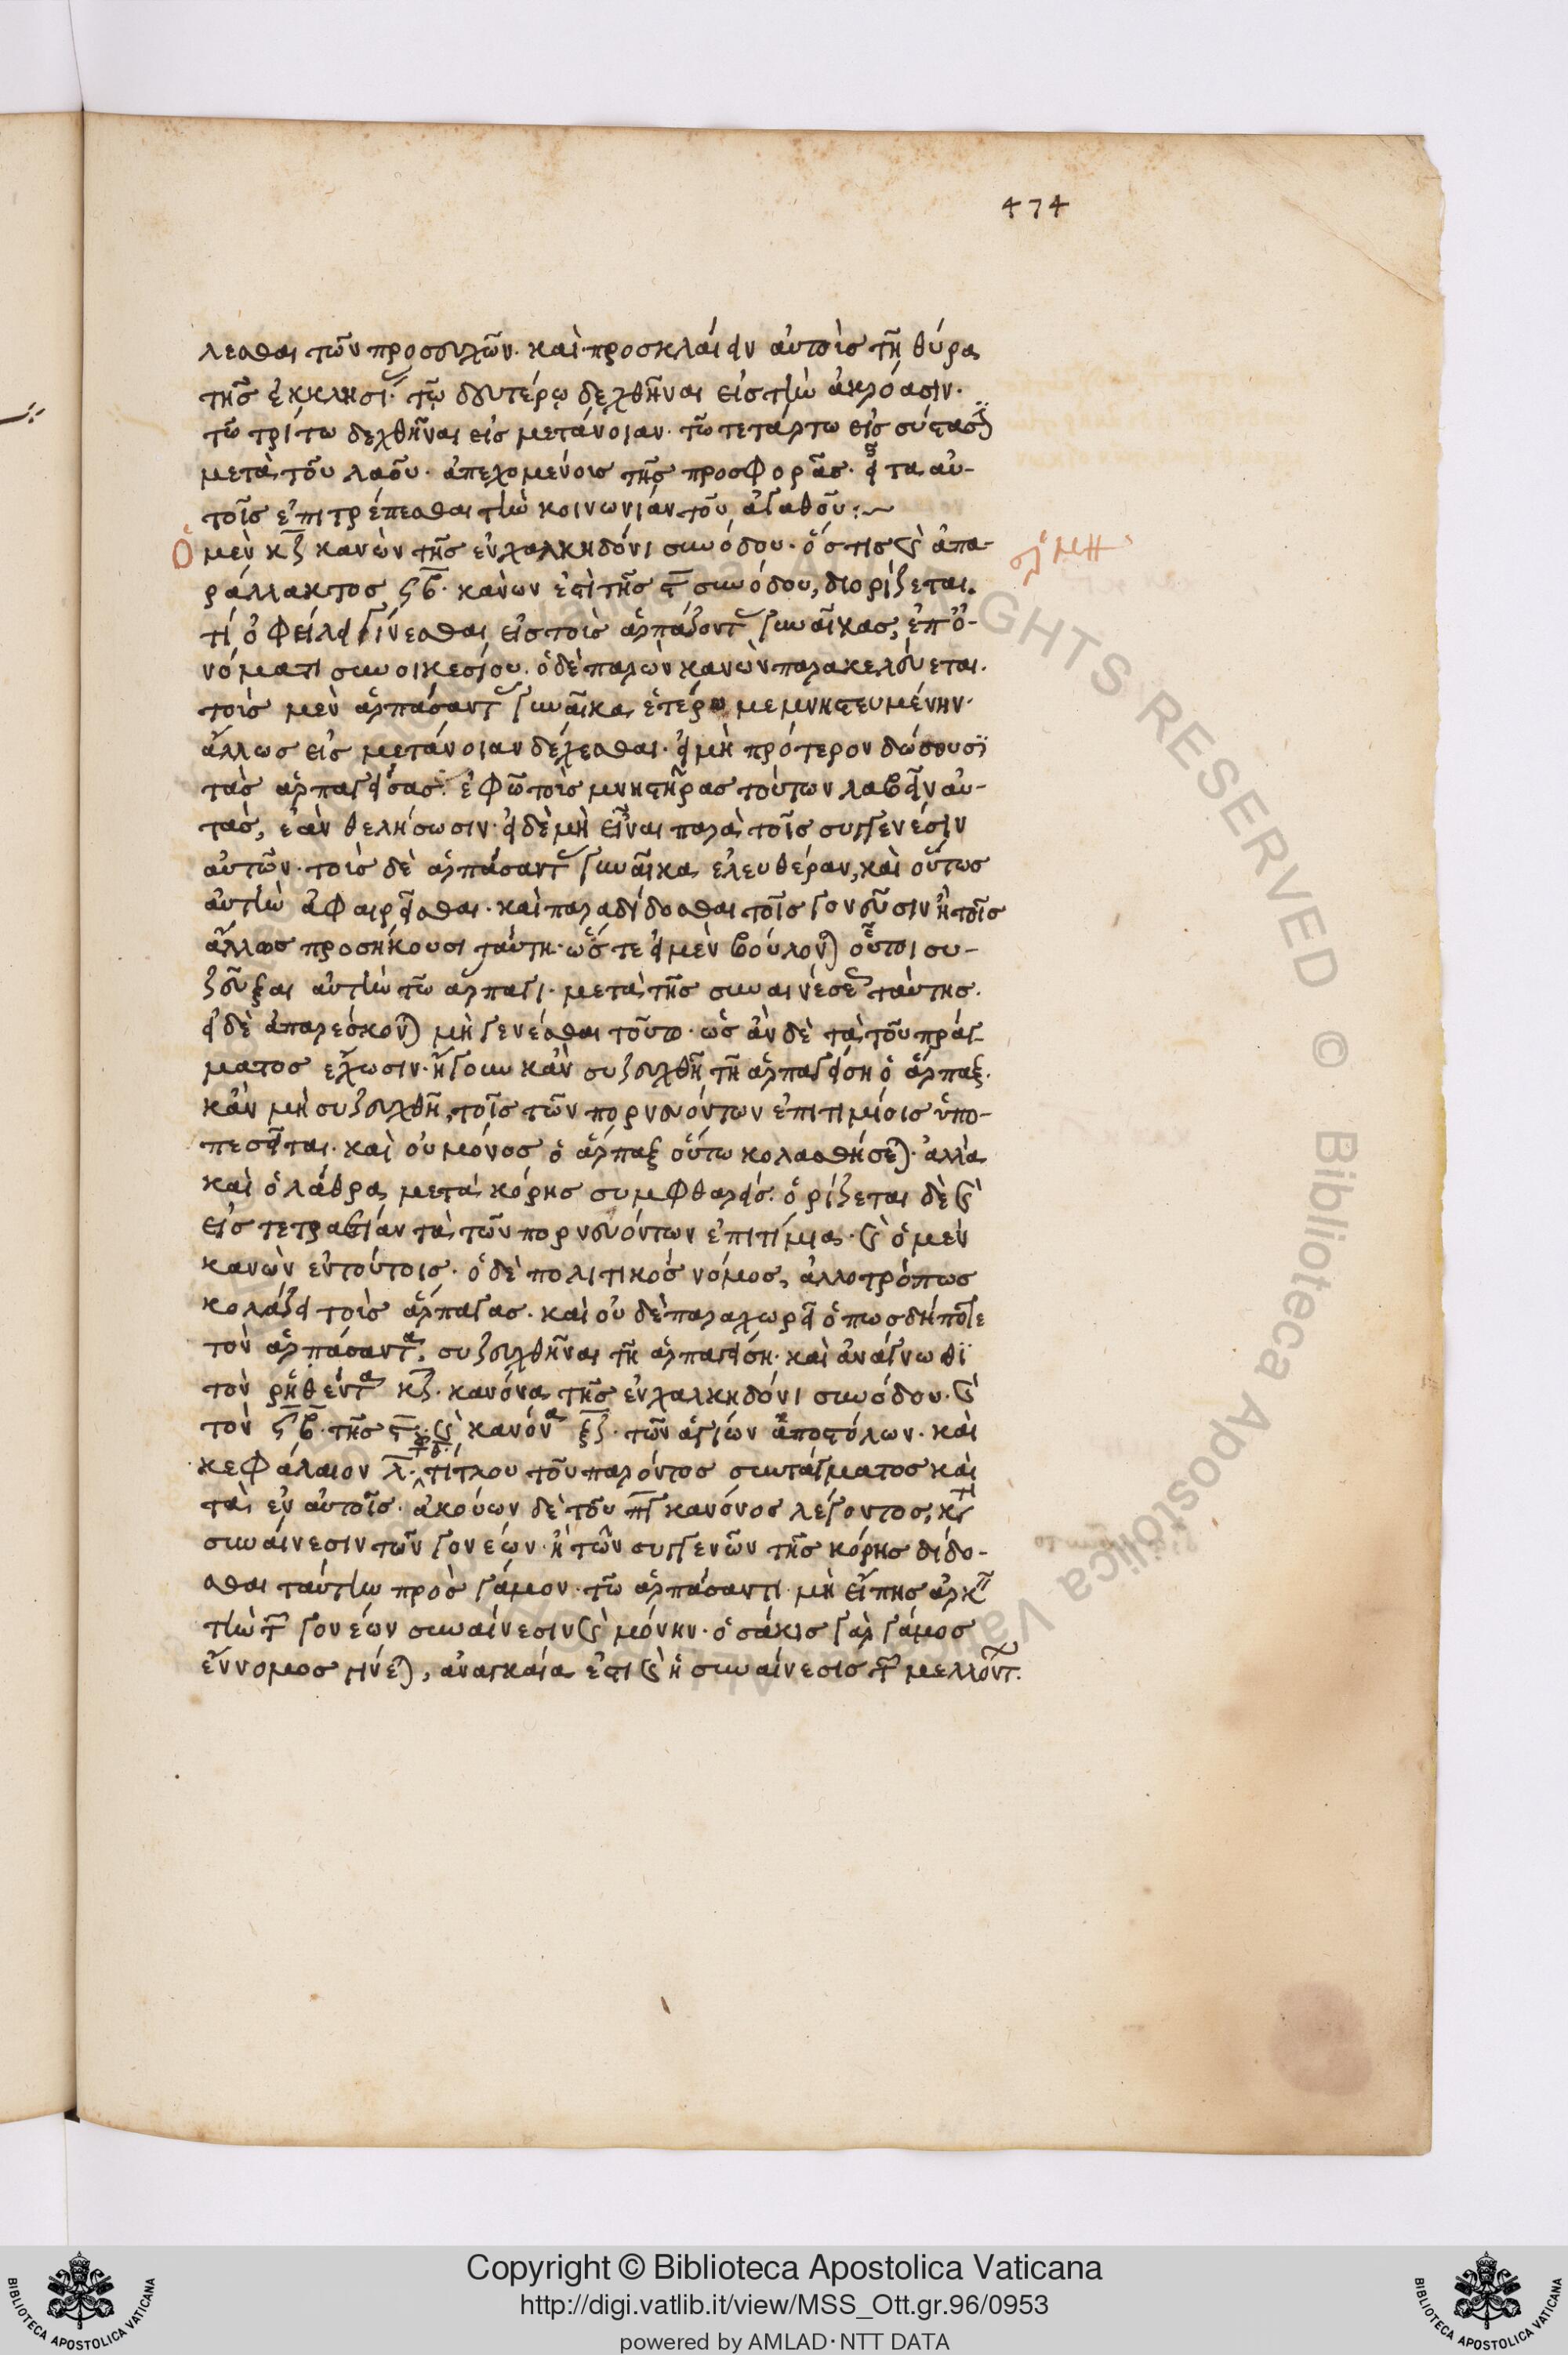 474
λεσθαι τῶν προσευχῶν· καὶ προσκλαίειν αὐτοὺς τῇ θύρᾳ
τῆς ἐκκλησί· τῷ δευτέρῳ δεχθῆναι εἰς τὴν ἀκρόασιν·
τῷ τρίτω δεχθῆναι εἰς μετάνοιαν· τῷ τετάρτω εἰς σύστασιν
μετὰ τοῦ λαοῦ· ἀπεχομένους τῆς προσφορᾶς· εἶτα αὐ-
τοῖς ἐπιτρέπεσθαι τὴν κοινωνίαν τοῦ ἀγαθοῦ:~
Ὁ μὲν κζ κανὼν τῆς ἐν χαλκηδόνι συνόδου· ὅστις καὶ ἀπα-
ράλλακτος ϟβ· κανων ἐστὶ τῆς ϛ συνόδου, διορίζεται.
τί ὀφείλει γίνεσθαι εἰς τοὺς ἁρπάζοντας γυναῖκας, ἐπ' ὀ-
νόματι συνοικεσίου· ὁ δὲ παρὼν κανὼν παρακελεύεται.
τοὺς μὲν ἁρπάσαντας γυναῖκα ἑτέρω μεμνηστευμένην·
ἄλλως εἰς μετάνοιαν δέχεσθαι· εἰ μὴ πρότερον δώσουσϊ
τὰς ἁρπαγείσας· ἐφῶ τοὺς μνηστῆρας τούτων λαβεῖν αὐ-
τὰς, ἐὰν θελήσωσιν· εἰ δὲ μὴ εἶναι παρὰ τοῖς συγγενέσιν
αὐτῶν· τοὺς δὲ ἁρπάσαντας γυναῖκα ἐλευθέραν, καὶ οὕτως
αὐτὴν ἀφαιρεῖσθαι· καὶ παραδίδοσθαι τοῖς γονεῦσιν ἢ τοῖς
ἄλλως προσήκουσι ταύτη· ὥστε εἰ μὲν βούλονται οὗτοι συ-
ζεῦξαι αὐτὴν τῶ ἅρπαγι· μετὰ τῆς συναινέσεως ταύτης.
εἰ δὲ ἀπαρέσκονται μὴ γενέσθαι τοῦτο· ὡς ἂν δὲ τὰ τοῦ πράγ-
ματος ἔχωσιν· ἤγουν κἂν συζευχθῆ τῆ ἁρπαγείση ὁ ἅρπαξ·
κἂν μὴ συζευχθῆ, τοῖς τῶν πορνευόντων ἐπιτιμίοις ὑπο-
πεσεῖται· καὶ οὐ μόνος ὁ ἅρπαξ οὕτω κολασθήσεται· ἀλλὰ
καὶ ὁ λάθρα μετὰ κόρης συμφθαρείς· ὁρίζεται δὲ καὶ
εἰς τετραετίαν τὰ τῶν πορνευόντων ἐπιτίμια· καὶ ὁ μὲν
κανὼν ἐν τούτοις· ὁ δὲ πολιτικὸς νόμος, ἀλλοτρόπως
κολάζει τοὺς ἅρπαγας· καὶ οὐδὲ παραχωρεῖ ὁπωσδήποτε
τὸν ἁρπάσαντα, συζευχθῆναι τῆ ἁρπαγείση· καὶ ἀνάγνωθϊ
τὸν ῥηθέντα κζ· κανόνα τῆς ἐν χαλκηδόνι συνόδου· καὶ
τὸν ϟβ· τῆς ϛ· καὶ κανόνα ξζ· τῶν ἁγίων ἀποστόλων· καὶ
κεφάλαιον λ· τίτλου τοῦ παρόντος συντάγματος καὶ
τὰ ἐν αὐτοῖς· ἀκούων δὲ τοῦ κανόνος λέγοντος, κατὰ
συναίνεσιν τῶν γονέων· ἢ τῶν συγγενῶν τῆς κόρης δίδο-
σθαι ταύτην πρὸς γάμον· τῶ ἁρπάσαντι· μὴ εἴπης ἀρκεῖν
τὴν τῶν γονέων συναίνεσιν καὶ μόνην· ὁσάκις γὰρ γάμος
ἔννομος γίνεται, ἀναγκαία ἐστι καὶ ἡ συναίνεσις τῶν μελλόντων.
Copyright © Biblioteca Apostolica Vaticana
http://digi.vatlib.it/view/MSS_Ott.gr.96/0953
powered by AMLAD·NTT DATA
BIBLIOTECA APOSTOLICA VATICANA
BIBLIOTECA APOSTOLICA VATICANA